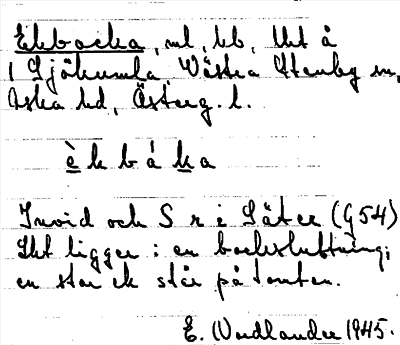 Ekbacka, ml, hb, lht å
1 Sjökumla, Västra Stenby sn,
Aska hd, Österg. l.
è k b á k a
Invid och S r i Säter (G54)
Lht ligger i en backsluttning;
en stor ek står på tomten.
E. Nordlander 1945.